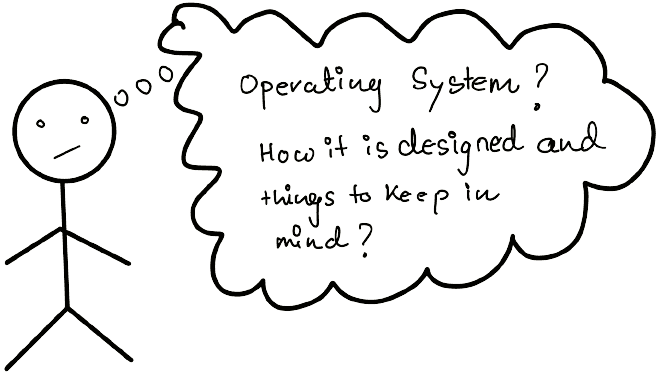 Operating System?
How it is designed and
things to keep in
mind?